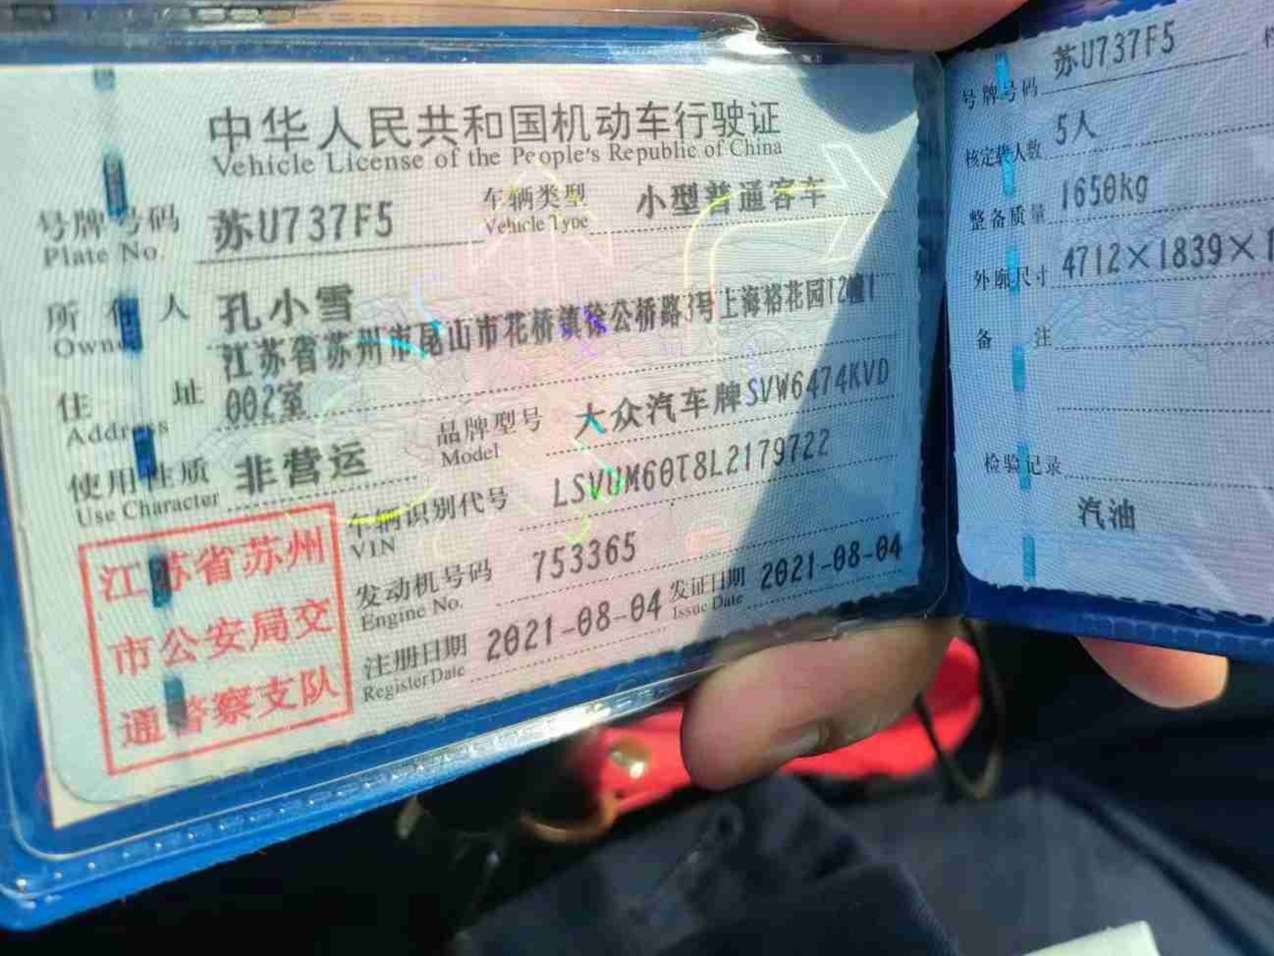 中华人民共和国机动车行驶证
Vehicle License of the People's Republic of China
号牌号码 苏U737F5 车辆类型 小型普通客车
Plate No. Vehicle Type
所有人 孔小雪
Owner
江苏省苏州市昆山市花桥镇徐公桥路3号上海裕花园12幢1
住址 002室
Address
品牌型号 大众汽车牌SVW6474KVD
Model
使用性质 非营运
Use Character
车辆识别代号 LSVUM60T8L2179722
VIN
发动机号码 753365
Engine No.
注册日期 2021-08-04 发证日期 2021-08-04
Register Date Issue Date
江苏省苏州
市公安局交
通警察支队
号牌号码 苏U737F5
核定载人数 5人
整备质量 1650kg
外廓尺寸 4712×1839×1
备注
检验记录
汽油